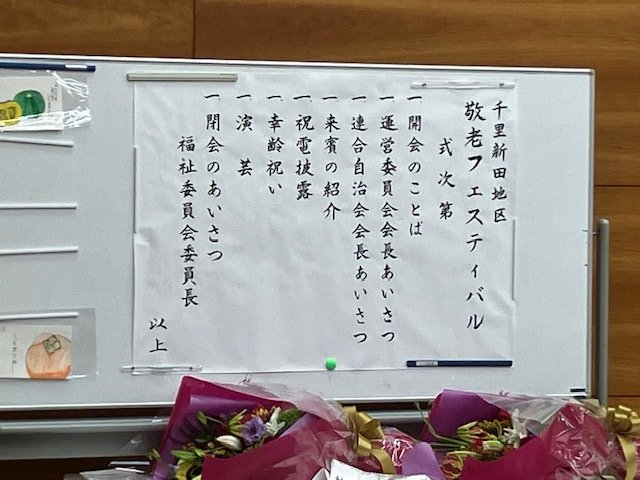 千里新田地区
敬老フェスティバル
式次第
一開会のことば
一運営委員会会長あいさつ
一連合自治会会長あいさつ
一来賓の紹介
一祝電披露
一幸齢祝い
一演芸
一閉会のあいさつ
福祉委員会委員長
以上